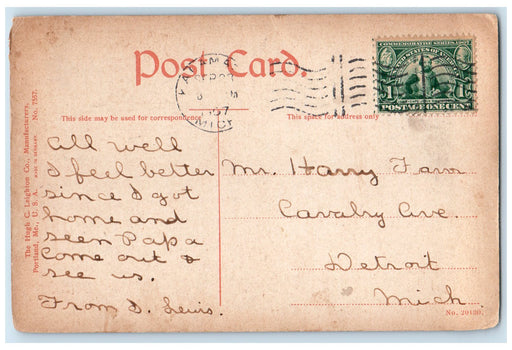 Post Card.
COMMEMORATIVE SERIES 1907
1 1
POSTAGE ONE CENT
This side may be used for correspondence
This space for address only
The Hugh C. Leighton Co., Manufacturers,
Portland, Me., U. S. A.
MADE IN GERMANY
No. 7557.
All well
I feel better
since I got
home and
seen Papa
Come out &
see us.
From D. Lewis.
Mr. Harry Farm
Cavalry Ave.
Detroit
Mich
No. 20430.